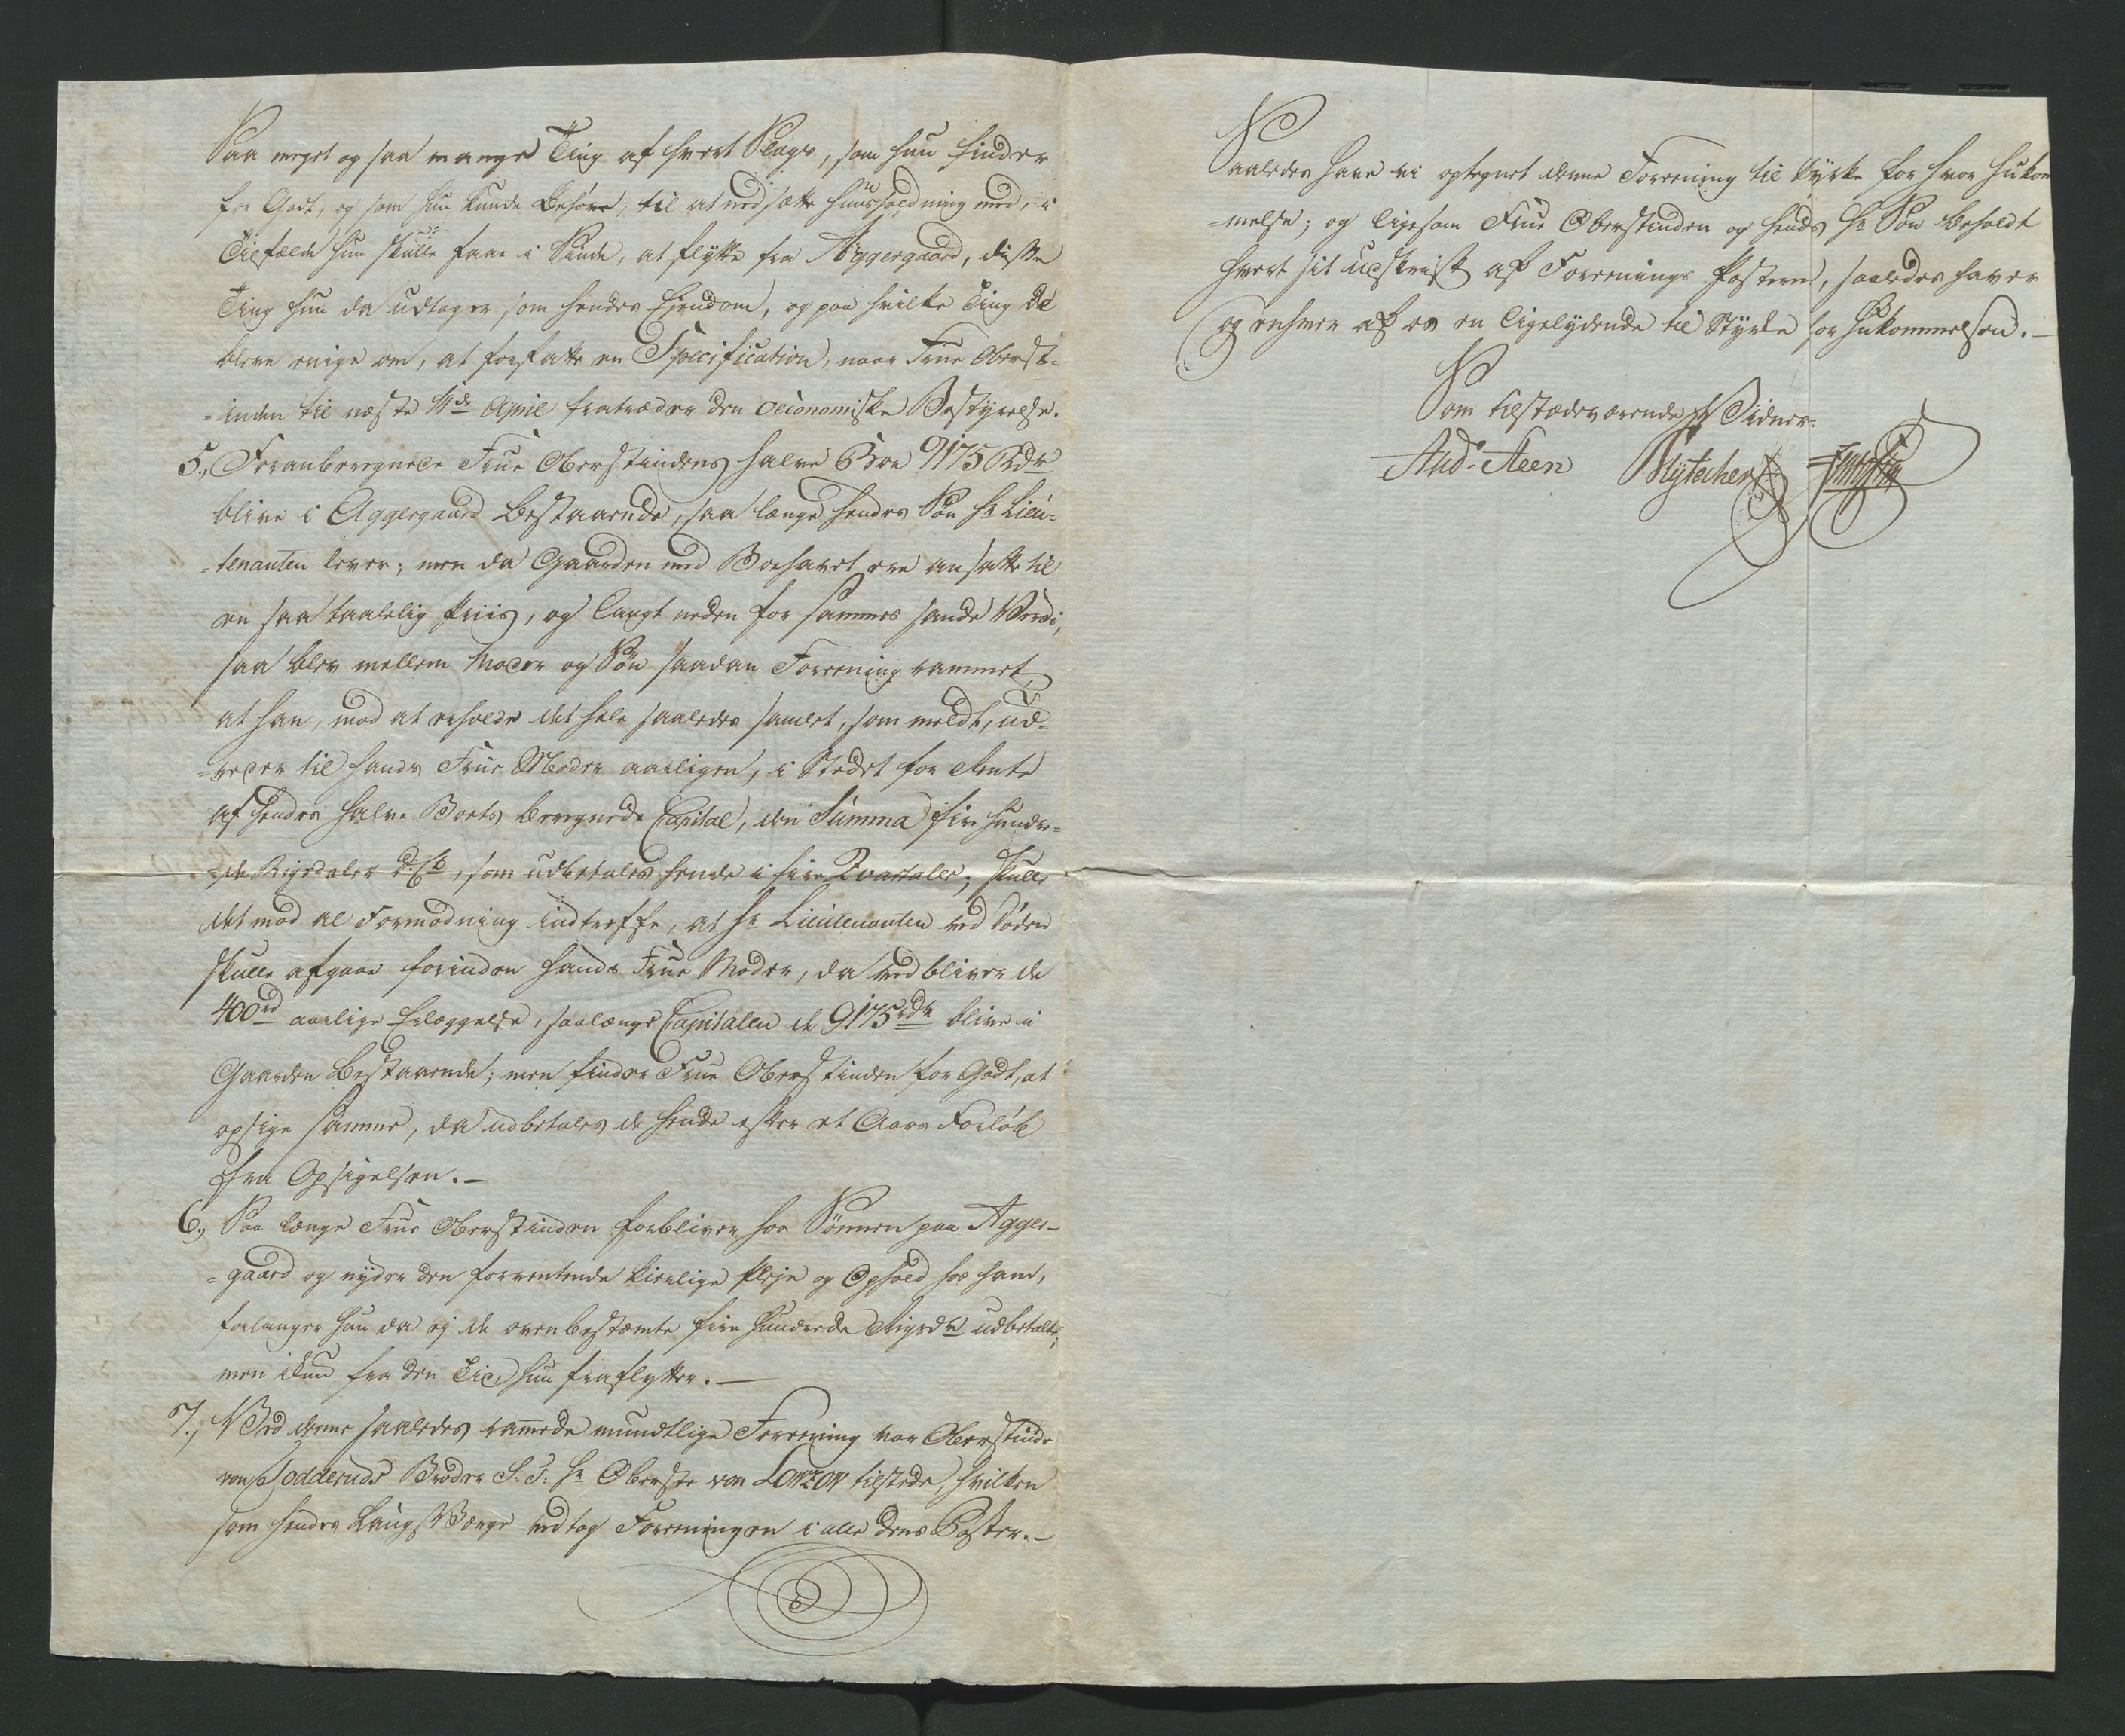 Saa meget og saa mange Ting af hvert Slags, som hun finder
for Godt, og som hun kunde Behøve, til at nedsætte Huusholdning med, i
Tilfælde hun skulle faae i Sinde, at flytte fra Aggergaard, disse
Ting hun da udtager som hendes Eiendom, og paa hvilke Ting de
bleve enige om, at forfatte en Specification, naar Frue Oberst-
-inden til næste 14de April fratræder den oeconomiske Bestyrelse.
5., Foranberegnede Frue Oberstindens halve Boe 9175 Rdr
blive i Aggergaard Bestaaende, saa længe hendes Søn Hr Lieu-
-tenanten lever; men da Gaarden med Boehavet ere ansatte til
en saa taalelig Priis, og langt neden for sammes sande Værdi,
saa blev mellem Moder og Søn saadan Foreening rammet,
at han, mod at erholde det hele saaledes samlet, som meldt, ud-
-reder til hands Frue Moder aarligen, i Stedet for Rente
af hendes halve Boets beregnede Capital, den Summa fire hundre-
-de Rigsdaler d: C:, som udbetales hende i fire Qvartaler; skulle
det mod al Formodning indtreffe, at Hr Lieutenanten ved Døden
skulle afgaae forinden hands Frue Moder, da vedbliver de
400rd aarlige Erlæggelse, saalænge Capitalen de 9175rdr blive i
Gaarden Bestaaende; men finder Frue Oberstinden for Godt, at
opsige samme, da udbetales de hende efter et Aars Forløb
fra Opsigelsen.-
6., Saa længe Frue Oberstinden forbliver hos Sønnen paa Agger-
-gaard og nyder den forventende kierlige Pleje og Ophold hos ham,
forlanger hun da ej de ovenbestemte fire hundrede Rigsdr udbetalte,
men ikun fra den Tid, hun fraflytter.-
7., Ved denne saaledes rammede mundtlige Foreening var Oberstinde
von Hodderuds Broder S: T: Hr Oberste von Lowzow tilstede, hvilken
som hendes Laugs Værge vedtog Foreeningen i alle dens Poster.-
Saaledes have vi optegnet denne Foreening til Styrke for hver Hukom
-melse; og ligesom Frue Oberstinden og hends Hr Søn beholdt
hvert sit Udskrift af Foreenings Posterne, saaledes haver
og enhver af os en ligelydende til Styrke for Hukommelsen.-
Som tilstedeværende Vidner:
And. Steen